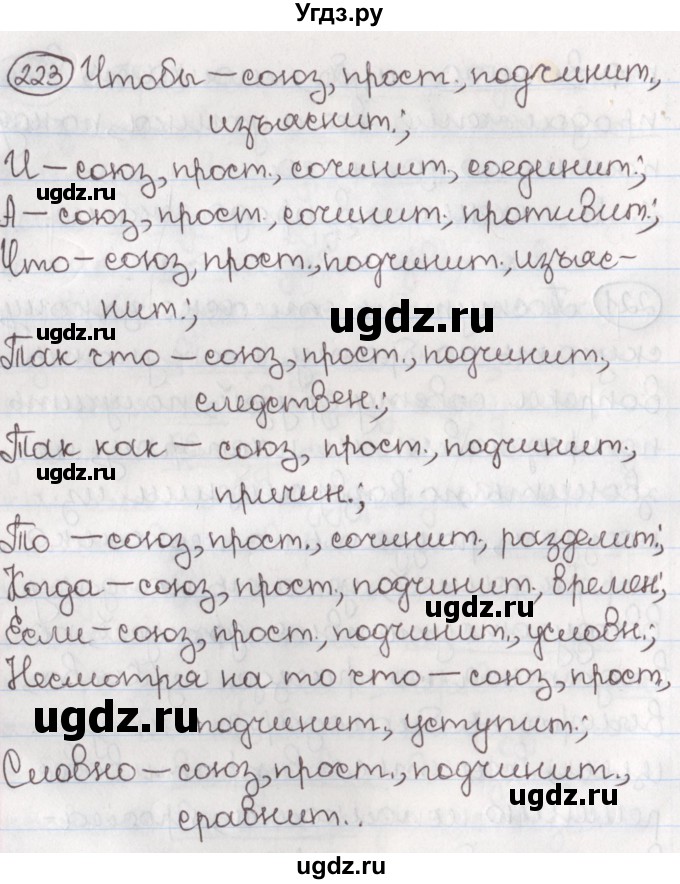 Угдз.ру
223 Чтобы – союз, прост., подчинит.,
изъяснит.;
И – союз, прост., сочинит., соединит.;
ugdz.ru
А – союз, прост., сочинит., противит.;
Что – союз, прост., подчинит., изъяс-
нит.;
ugdz.ru
ugdz.ru
Так что – союз, прост., подчинит.,
следствен.;
Так как – союз, прост., подчинит.,
ugdz.ru
причин.;
То – союз, прост., сочинит., разделит.;
Когда – союз, прост., подчинит., времен.;
ugdz.ru
Если – союз, прост., подчинит., условн.;
Несмотря на то что – союз, прост.,
ugdz.ru
подчинит., уступит.;
Словно – союз, прост., подчинит.,
ugdz.ru
сравнит..
ugdz.ru